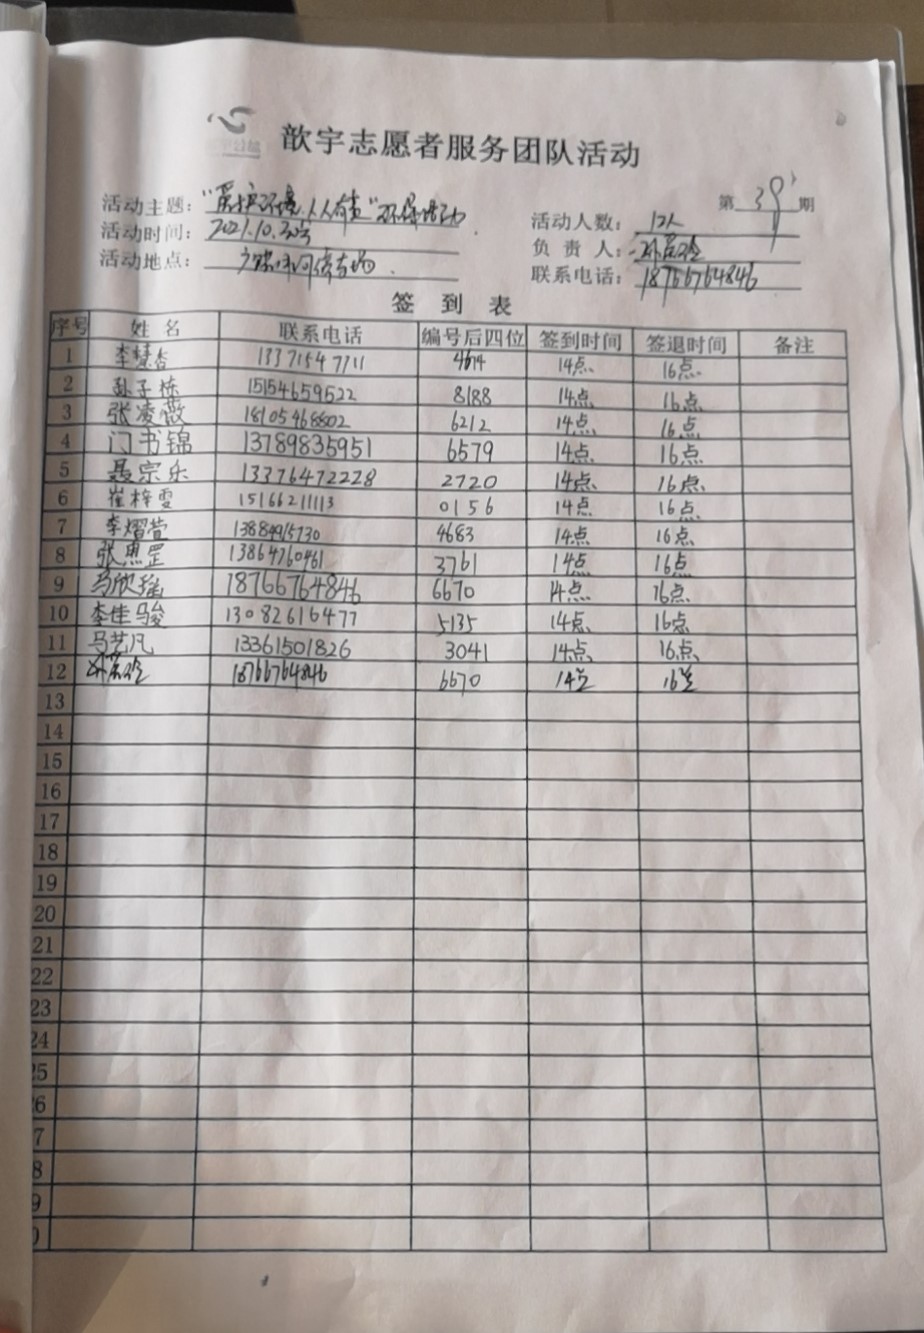 歆宇志愿者服务团队活动
活动主题：“爱护环境，人人有责”环保活动 第 39 期
活动时间：2021.10.30号 活动人数：12人
活动地点： 负责人：
联系电话：18766764846
签到表
序号 姓名 联系电话 编号后四位 签到时间 签退时间 备注
1 李慧杏 13371547711 4674 14点 16点
2 孙子栋 15154659522 8188 14点 16点
3 张凌薇 18105468802 6212 14点 16点
4 门书锦 13789835951 6579 14点 16点
5 聂宗乐 13376472228 2720 14点 16点
6 崔梓雯 15166211113 0156 14点 16点
7 李熠萱 4683 14点 16点
8 张惠罡 13864760461 3761 14点 16点
9 马欣瑶 18766764846 6670 14点 16点
10 李佳骏 13082616477 5135 14点 16点
11 马艺凡 13361501826 3041 14点 16点
12 18766764846 6670 14点 16点
13
14
15
16
17
18
19
20
21
22
23
24
25
26
7
8
9